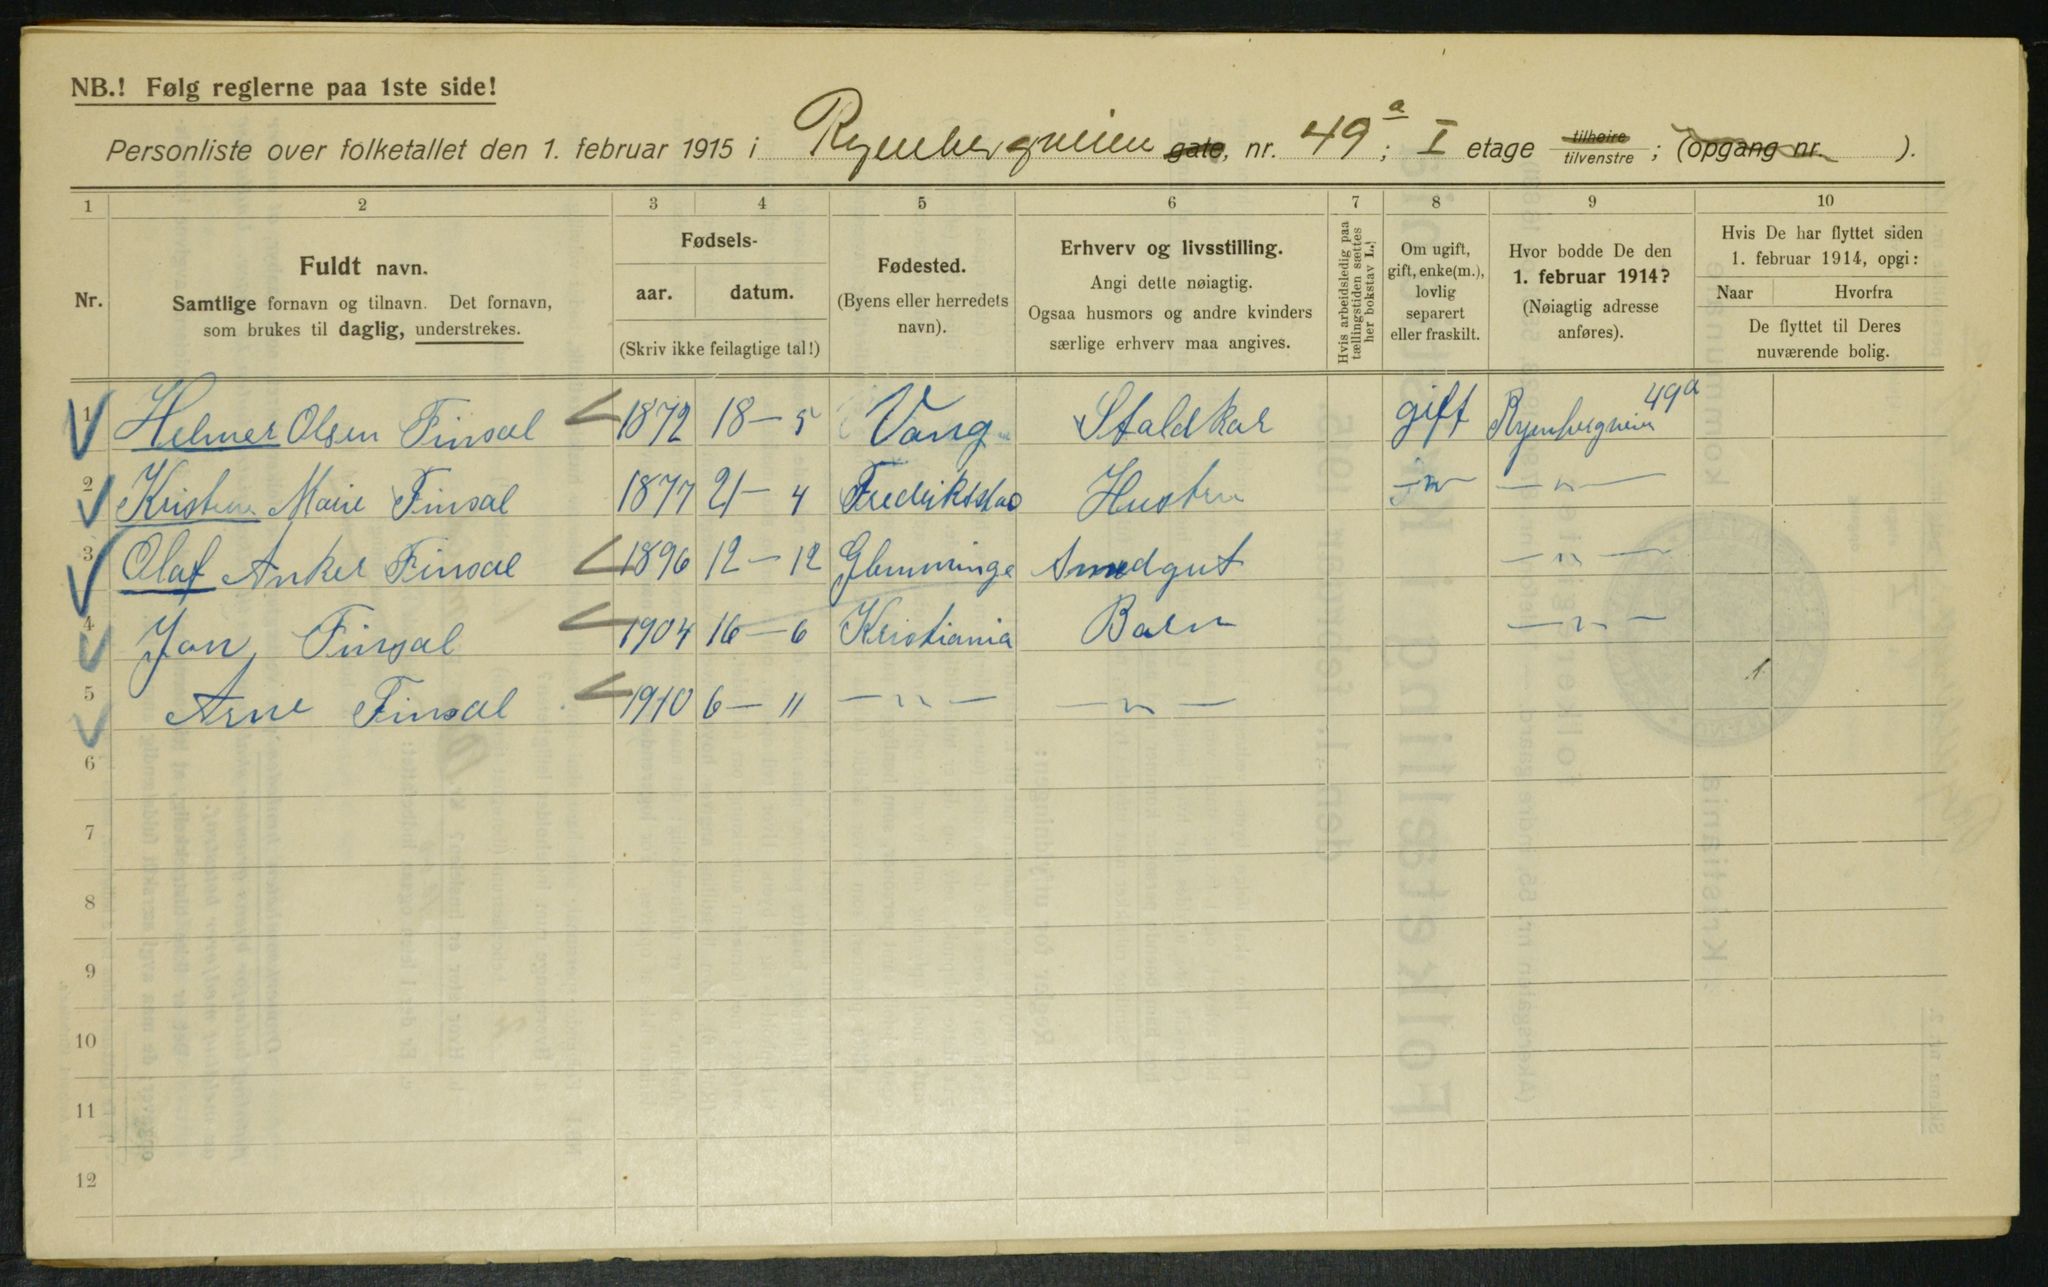 NB.! Følg reglerne paa 1ste side!
Personliste over folketallet den 1. februar 1915 i Ryenbergveien gate, nr. 49a; I etage tilhøire tilvenstre; (opgang nr. ).
1 2 3 4 5 6 7 8 9 10
Nr.
Fuldt navn.
Samtlige fornavn og tilnavn. Det fornavn,
som brukes til daglig, understrekes.
Fødsels-
aar. datum.
(Skriv ikke feilagtige tal!)
Fødested.
(Byens eller herredets
navn).
Erhverv og livsstilling.
Angi dette nøiagtig.
Ogsaa husmors og andre kvinders
særlige erhverv maa angives.
Hvis arbeidsledig paa
tællingstiden sættes
her bokstav L.!
Om ugift,
gift, enke(m.),
lovlig
separert
eller fraskilt.
Hvor bodde De den
1. februar 1914?
(Nøiagtig adresse
anføres).
Hvis De har flyttet siden
1. februar 1914, opgi:
Naar Hvorfra
De flyttet til Deres
nuværende bolig.
1 Helmer Olsen Finsal 1872 18 – 5 Vang Staldkar gift Ryenbergveien 49a
2 Kristine Marie Finsal 1877 21 – 4 Fredrikstad Hustru – " – – " –
3 Olaf Anker Finsal 1896 12 – 12 Glemminge Smedgut – " –
4 Jon Finsal 1904 16 – 6 Kristiania Barn – " –
5 Arne Finsal 1910 6 – 11 – " – – " –
1.
6
7
8
9
10
11
12